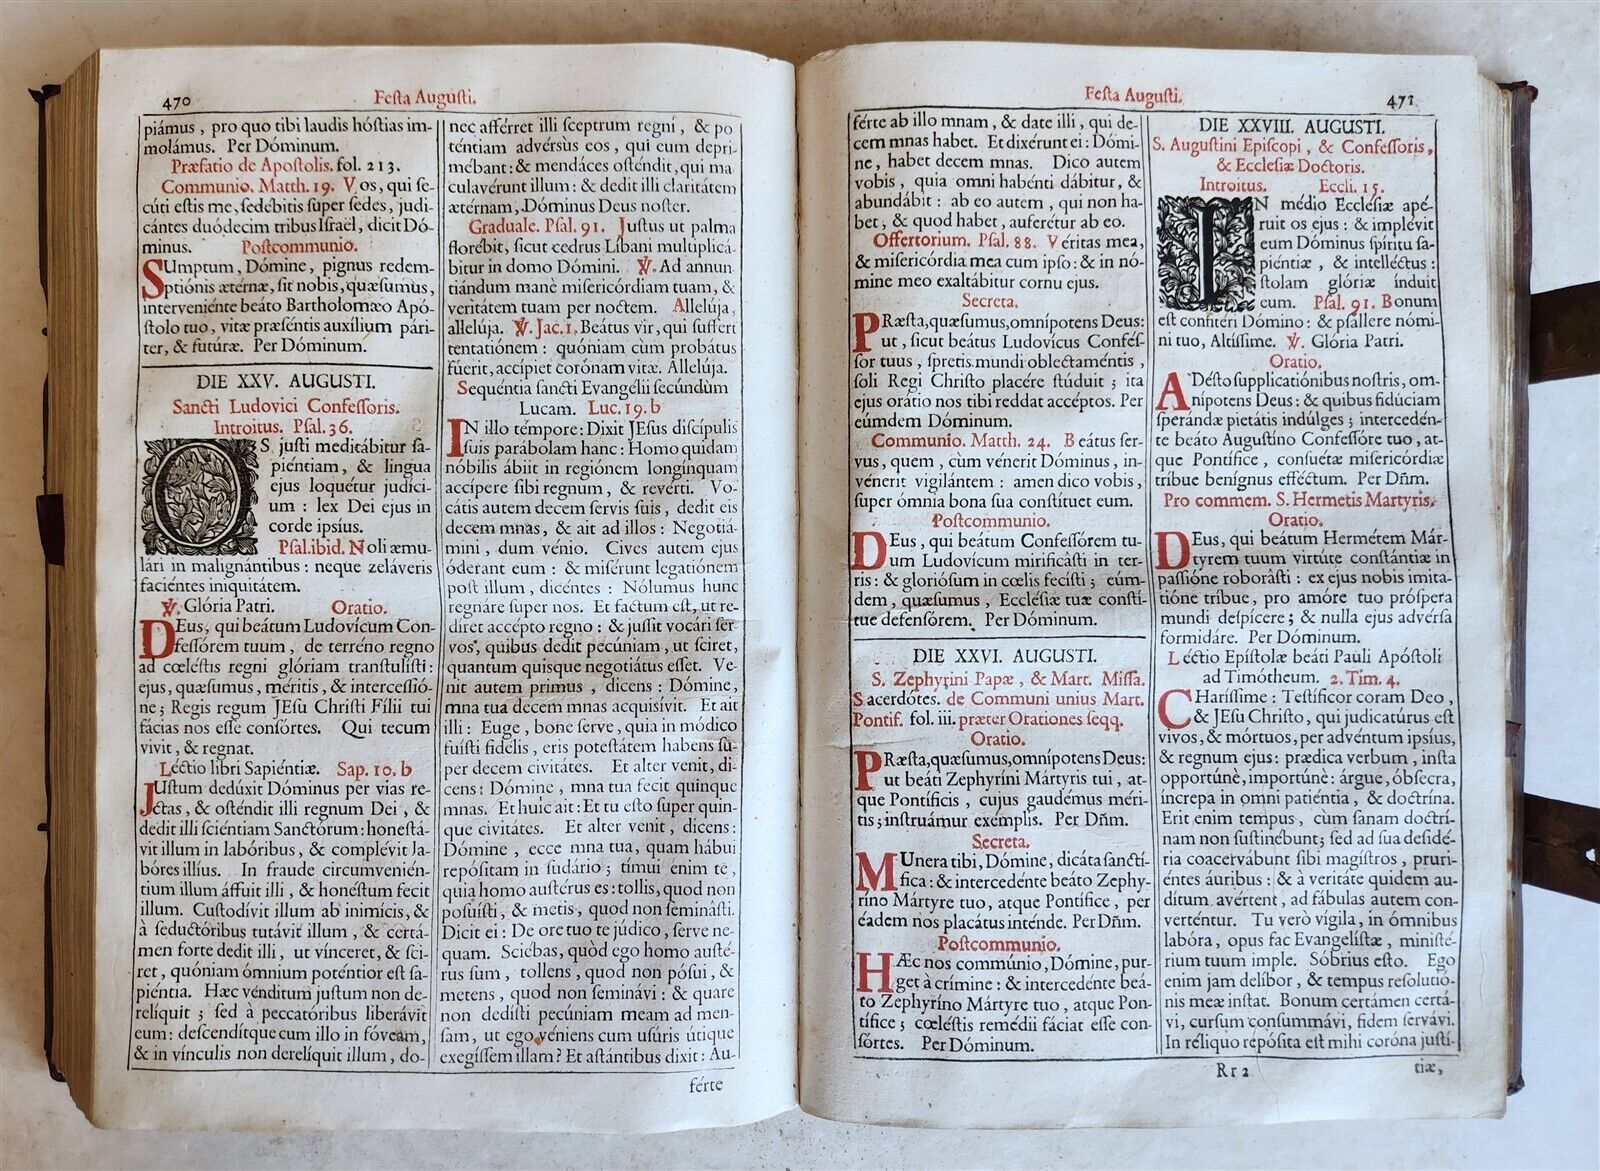 470
Festa Augusti.
piámus, pro quo tibi laudis hóstias im-
molámus. Per Dóminum.
Præfatio de Apostolis. fol. 213.
Communio. Matth. 19. Vos, qui se-
cúti estis me, sedébitis super sedes, judi-
cántes duódecim tribus Israël, dicit Dó-
minus. Postcommunio.
SUmptum, Dómine, pignus redem-
ptiónis æternæ, sit nobis, quæsumus,
interveniénte beáto Bartholomæo Apó-
stolo tuo, vitæ præséntis auxílium pári-
ter, & futúræ. Per Dóminum.
DIE XXV. AUGUSTI.
Sancti Ludovici Confessoris.
Introitus. Psal. 36.
OS justi meditábitur sa-
piéntiam, & lingua
ejus loquétur judíci-
um : lex Dei ejus in
corde ipsíus.
Psal.ibid. Noli æmu-
lári in malignántibus : neque zeláveris
faciéntes iniquitátem.
℣. Glória Patri. Oratio.
DEus, qui beátum Ludovícum Con-
fessórem tuum, de terréno regno
ad cœléstis regni glóriam transtulísti:
ejus, quæsumus, méritis, & intercessió-
ne; Regis regum JEsu Christi Fílii tui
fácias nos esse consórtes. Qui tecum
vivit, & regnat.
Léctio libri Sapiéntiæ. Sap. 10. b
JUstum dedúxit Dóminus per vias re-
ctas, & osténdit illi regnum Dei, &
dedit illi sciéntiam Sanctórum: honestá-
vit illum in labóribus, & complévit la-
bóres illíus. In fraude circumvenién-
tium illum áffuit illi, & honéstum fecit
illum. Custodívit illum ab inimícis, &
à seductóribus tutávit illum, & certá-
men forte dedit illi, ut vínceret, & sci-
ret, quóniam ómnium poténtior est sa-
piéntia. Hæc vénditum justum non de-
relíquit; sed à peccatóribus liberávit
eum: descendítque cum illo in fóveam,
& in vínculis non derelíquit illum, do-
nec afférret illi sceptrum regni, & po
téntiam advérsùs eos, qui eum depri-
mébant: & mendáces osténdit, qui ma
culavérunt illum: & dedit illi claritátem
ætérnam, Dóminus Deus noster.
Graduale. Psal. 91. Justus ut palma
florébit, sicut cedrus Líbani multiplicá-
bitur in domo Dómini. ℣. Ad annun
tiándum manè misericórdiam tuam, &
veritátem tuam per noctem. Allelúja,
allelúja. ℣. Jac. 1. Beátus vir, qui suffert
tentatiónem : quóniam cùm probátus
fúerit, accípiet corónam vitæ. Allelúja.
Sequéntia sancti Evangélii secúndùm
Lucam. Luc. 19. b
IN illo témpore: Dixit JEsus discípulis
suis parábolam hanc: Homo quidam
nóbilis ábiit in regiónem longínquam
accípere sibi regnum, & revérti. Vo-
cátis autem decem servis suis, dedit eis
decem mnas, & ait ad illos: Negotiá-
mini, dum vénio. Cives autem ejus
óderant eum : & misérunt legatiónem
post illum, dicéntes : Nólumus hunc
regnáre super nos. Et factum est, ut re-
díret accépto regno : & jussit vocári ser
vos, quibus dedit pecúniam, ut sciret,
quantum quisque negotiátus esset. Ve-
nit autem primus, dicens: Dómine,
mna tua decem mnas acquisívit. Et ait
illi: Euge, bone serve, quia in módico
fuísti fidélis, eris potestátem habens su-
per decem civitátes. Et alter venit, di-
cens: Dómine, mna tua fecit quinque
mnas. Et huic ait: Et tu esto super quin-
que civitátes. Et alter venit, dicens:
Dómine, ecce mna tua, quam hábui
repósitam in sudário; tímui enim te,
quia homo austérus es: tollis, quod non
posuísti, & metis, quod non seminásti.
Dicit ei: De ore tuo te júdico, serve ne-
quam. Sciébas, quòd ego homo austé-
rus sum, tollens, quod non pósui, &
metens, quod non seminávi: & quare
non dedísti pecúniam meam ad men-
sam, ut ego véniens cum usúris útique
exegíssem illam? Et astántibus dixit: Au-
férte
Festa Augusti.
471
férte ab illo mnam, & date illi, qui de-
cem mnas habet. Et dixérunt ei: Dómi-
ne, habet decem mnas. Dico autem
vobis, quia omni habénti dábitur, &
abundábit: ab eo autem, qui non ha-
bet, & quod habet, auferétur ab eo.
Offertorium. Psal. 88. Véritas mea,
& misericórdia mea cum ipso: & in nó-
mine meo exaltábitur cornu ejus.
Secreta.
PRæsta, quæsumus, omnípotens Deus:
ut, sicut beátus Ludovícus Conféf-
sor tuus, spretis mundi oblectaméntis,
soli Regi Christo placére stúduit; ita
ejus orátio nos tibi reddat accéptos. Per
eúmdem Dóminum.
Communio. Matth. 24. Beátus ser-
vus, quem, cùm vénerit Dóminus, in-
vénerit vigilántem: amen dico vobis,
super ómnia bona sua constítuet eum.
Postcommunio.
DEus, qui beátum Confessórem tu-
um Ludovícum mirificásti in ter-
ris: & gloriósum in cœlis fecísti; eúm-
dem, quæsumus, Ecclésiæ tuæ constí-
tue defensórem. Per Dóminum.
DIE XXVI. AUGUSTI.
S. Zephyrini Papæ, & Mart. Missa.
Sacerdótes. de Communi unius Mart.
Pontif. fol. iii. præter Orationes seqq.
Oratio.
PRæsta, quæsumus, omnípotens Deus:
ut beáti Zephyríni Mártyris tui, at-
que Pontíficis, cujus gaudémus méri-
tis; instruámur exémplis. Per Dñm.
Secreta.
MUnera tibi, Dómine, dicáta sanctí-
fica: & intercedénte beáto Zephy-
ríno Mártyre tuo, atque Pontífice, per
éadem nos placátus inténde. Per Dñm.
Postcommunio.
HÆc nos commúnio, Dómine, pur-
get à crímine: & intercedénte beá-
to Zephyríno Mártyre tuo, atque Pon-
tífice; cœléstis remédii fáciat esse con-
sórtes. Per Dóminum.
DIE XXVIII. AUGUSTI.
S. Augustini Episcopi, & Confessoris,
& Ecclesiæ Doctoris.
Introitus. Eccli. 15.
IN médio Ecclésiæ apé-
ruit os ejus: & implévit
eum Dóminus spíritu sa-
piéntiæ, & intelléctus:
stolam glóriæ índuit
eum. Psal. 91. Bonum
est confitéri Dómino: & psállere nómi-
ni tuo, Altíssime. ℣. Glória Patri.
Oratio.
ADésto supplicatiónibus nostris, om-
nípotens Deus: & quibus fidúciam
sperándæ pietátis indúlges; intercedén-
te beáto Augustíno Confessóre tuo, at-
que Pontífice, consuétæ misericórdiæ
tríbue benígnus efféctum. Per Dñm.
Pro commem. S. Hermetis Martyris.
Oratio.
DEus, qui beátum Hermétem Már-
tyrem tuum virtúte constántiæ in
passióne roborásti: ex ejus nobis imita-
tióne tríbue, pro amóre tuo próspera
mundi despícere; & nulla ejus advérsa
formidáre. Per Dóminum.
Léctio Epístolæ beáti Pauli Apóstoli
ad Timótheum. 2. Tim. 4.
CHaríssime: Testíficor coram Deo,
& JEsu Christo, qui judicatúrus est
vivos, & mórtuos, per advéntum ipsíus,
& regnum ejus: prædica verbum, insta
opportúnè, importúnè: árgue, óbsecra,
íncrepa in omni patiéntia, & doctrína.
Erit enim tempus, cùm sanam doctrí-
nam non sustinébunt; sed ad sua desidé-
ria coacervábunt sibi magístros, pruri-
éntes áuribus: & à veritáte quidem au-
dítum avértent, ad fábulas autem con-
verténtur. Tu verò vígila, in ómnibus
labóra, opus fac Evangelístæ, ministé-
rium tuum imple. Sóbrius esto. Ego
enim jam delíbor, & tempus resolutió-
nis meæ instat. Bonum certámen certá-
vi, cursum consummávi, fidem servávi.
In réliquo repósita est mihi coróna justí-
Rr 2
tiæ,